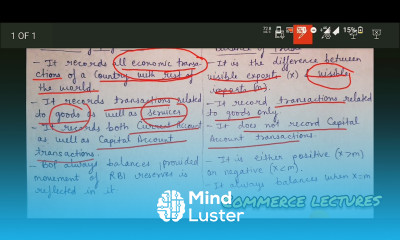 1 OF 1
- It records all economic transa-
ctions of a Country with rest of
the world.
- It records transactions related
to goods as well as services
- It records both Current Account
as well as Capital Account
transactions
- BoP always balances, provided
movement of RBI reserves is
reflected in it.
- It is the difference between
visible exports (x) visible
imports (m).
- It record transactions related
to goods only
- It does not record Capital
Account transactions.
- It is either positive (x>m)
or negative (x<m).
- It always balances when x=m
COMMERCE LECTURES
Mind
Luster